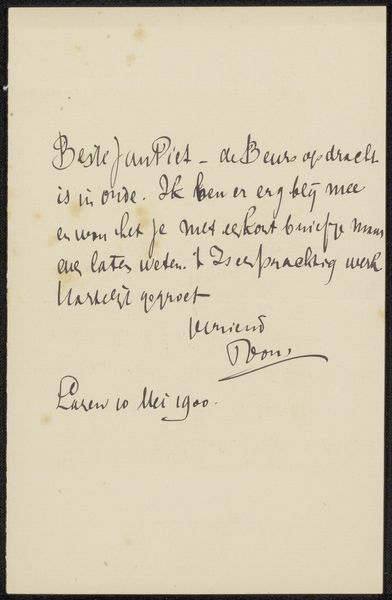 Beste Jan Piet - de Beurs opdracht
is in orde. Ik ben er erg blij mee
en wou het je met een kort briefje maar
even laten weten. 't Is een prachtig werk
Hartelijk gegroet
vriend
Toon.
Laren 10 Mei 1900.